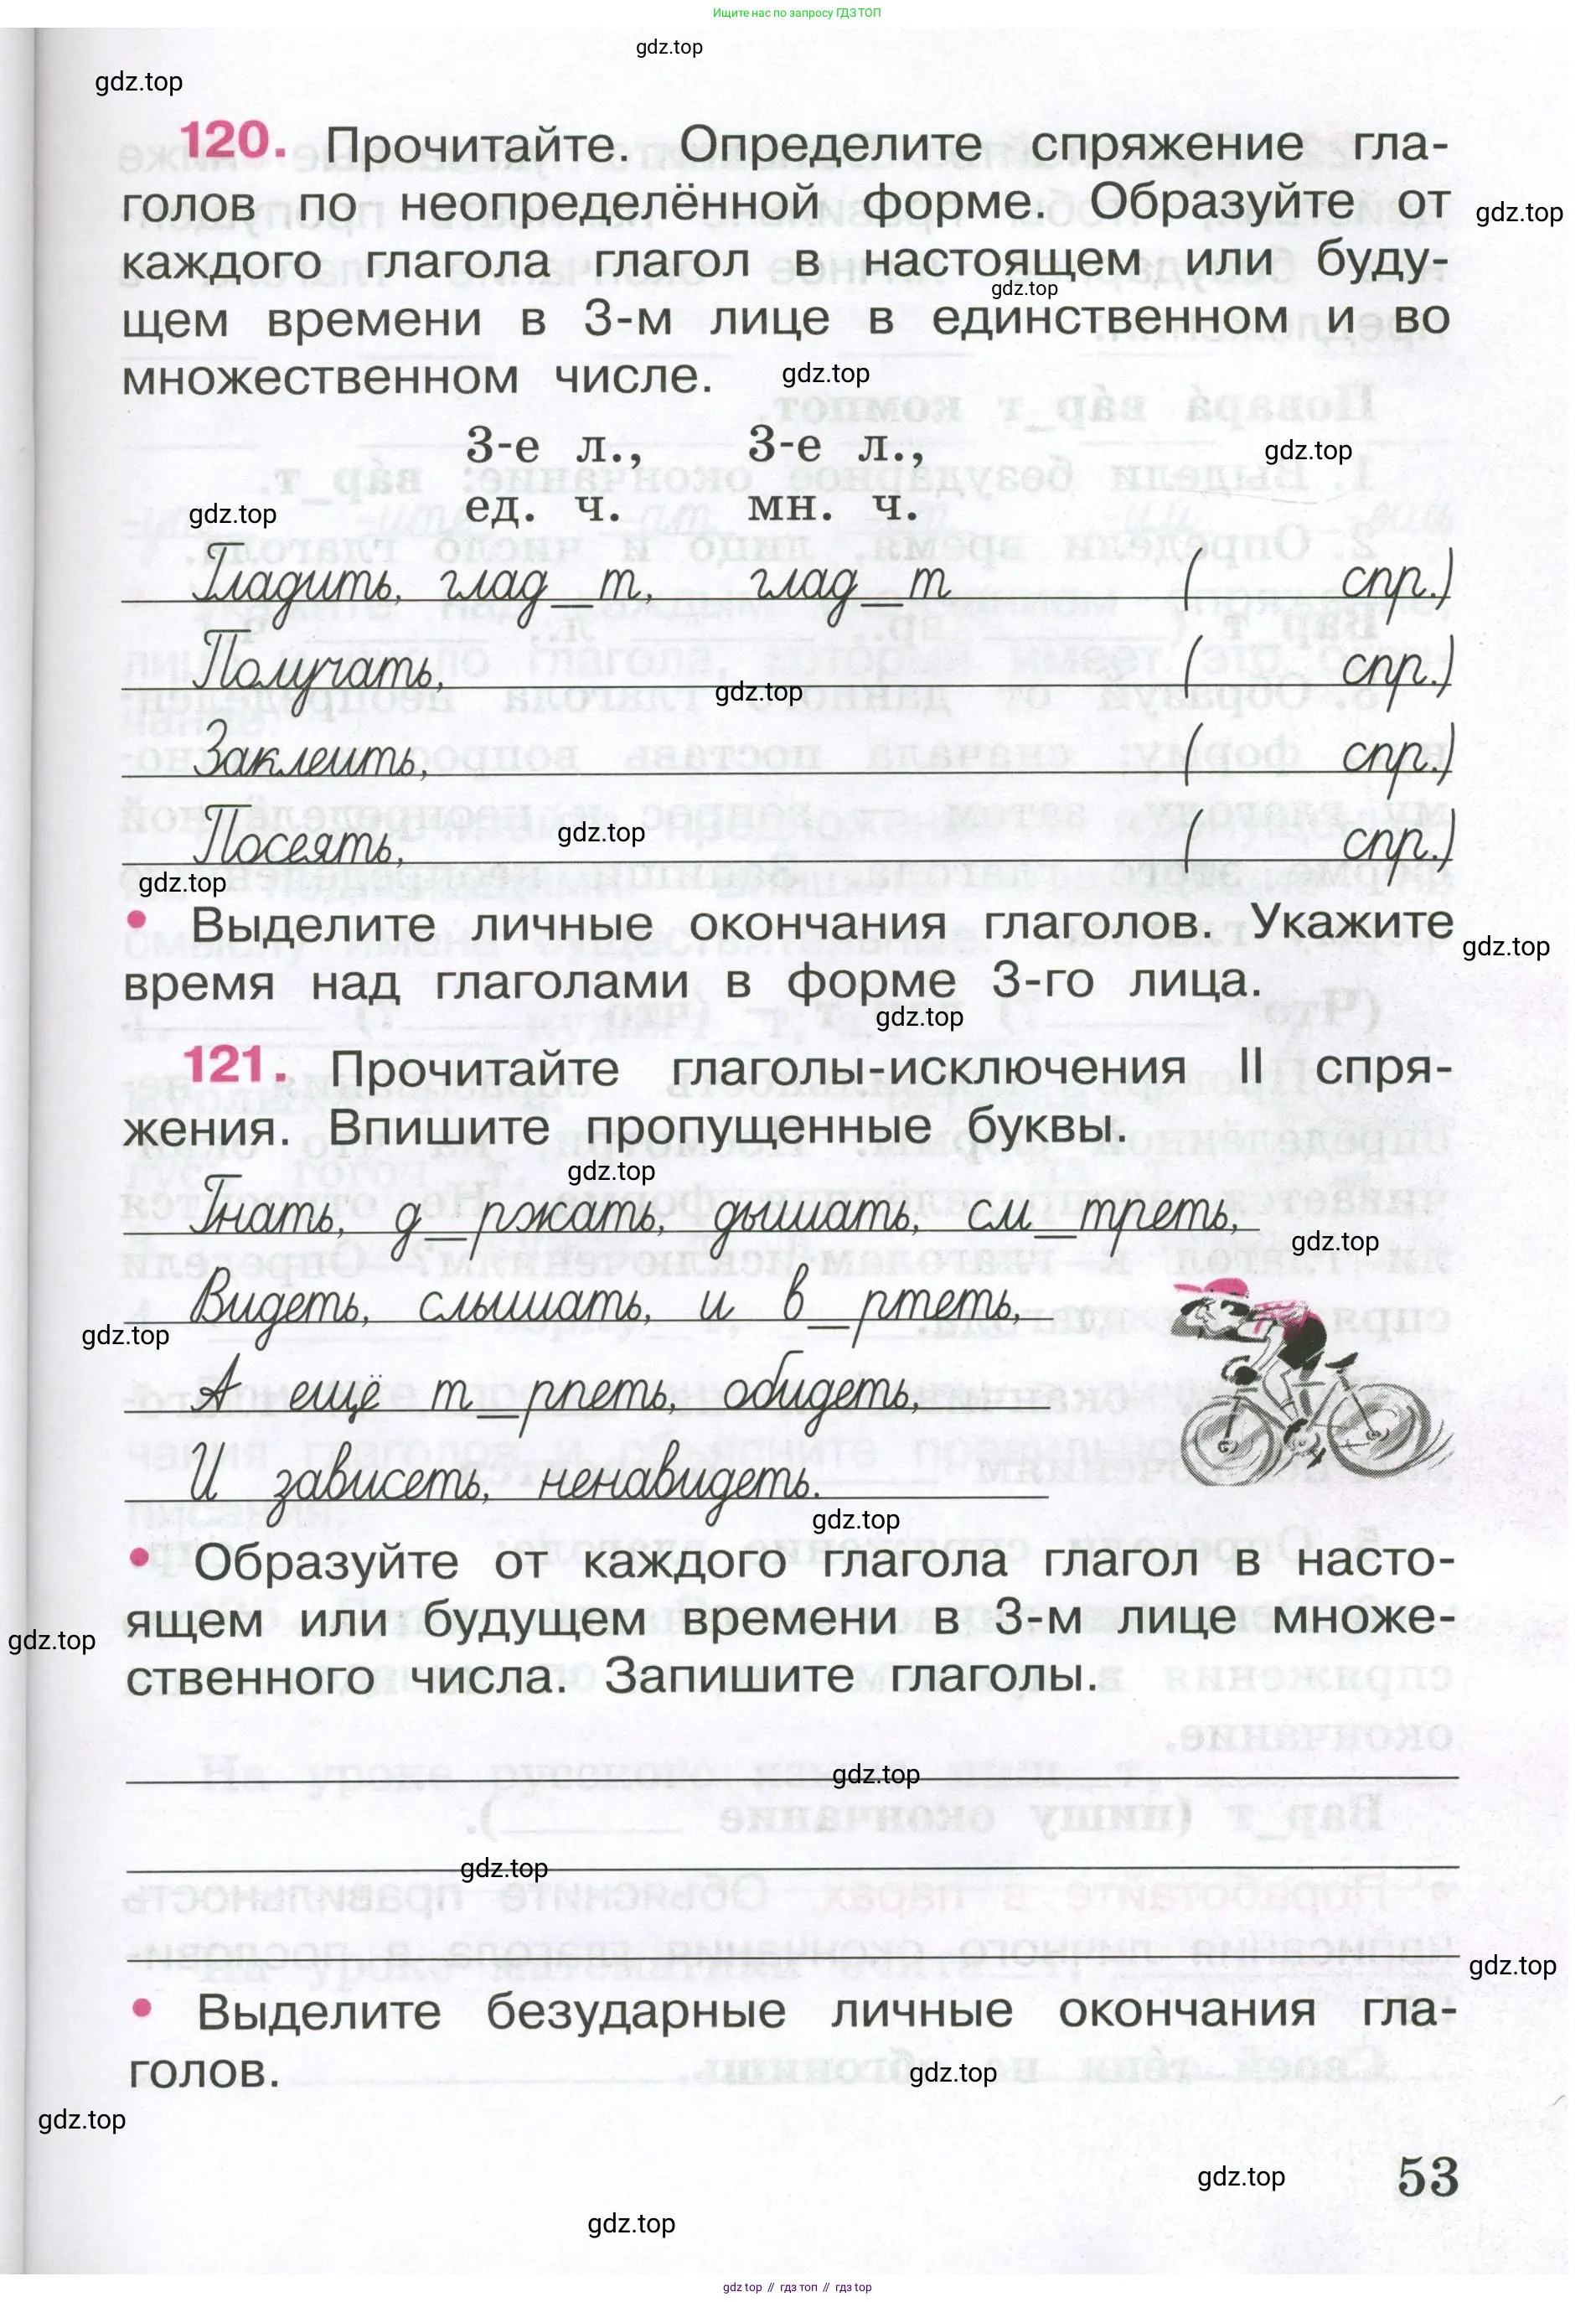 Ищите нас по запросу ГДЗ ТОП
gdz.top
gdz.top
120. Прочитайте. Определите спряжение гла-
голов по неопределённой форме. Образуйте от
gdz.top
каждого глагола глагол в настоящем или буду-
gdz.top
щем времени в 3-м лице в единственном и во
множественном числе.
gdz.top
3-е л., 3-е л.,
gdz.top
ед. ч. мн. ч.
gdz.top
Гладить, глад_т, глад_т ( спр.)
Получать, ( спр.)
gdz.top
Заклеить, ( спр.)
Посеять, ( спр.)
gdz.top
gdz.top
• Выделите личные окончания глаголов. Укажите
gdz.top
время над глаголами в форме 3-го лица.
gdz.top
121. Прочитайте глаголы-исключения II спря-
жения. Впишите пропущенные буквы.
gdz.top
Гнать, д_ржать, дышать, см_треть,
gdz.top
Видеть, слышать, и в_ртеть,
gdz.top
А ещё т_рпеть, обидеть,
И зависеть, ненавидеть.
gdz.top
• Образуйте от каждого глагола глагол в насто-
ящем или будущем времени в 3-м лице множе-
gdz.top
ственного числа. Запишите глаголы.
gdz.top
gdz.top
gdz.top
• Выделите безударные личные окончания гла-
голов.
gdz.top
gdz.top
gdz.top
53
gdz.top
gdz top // гдз топ // гдз top